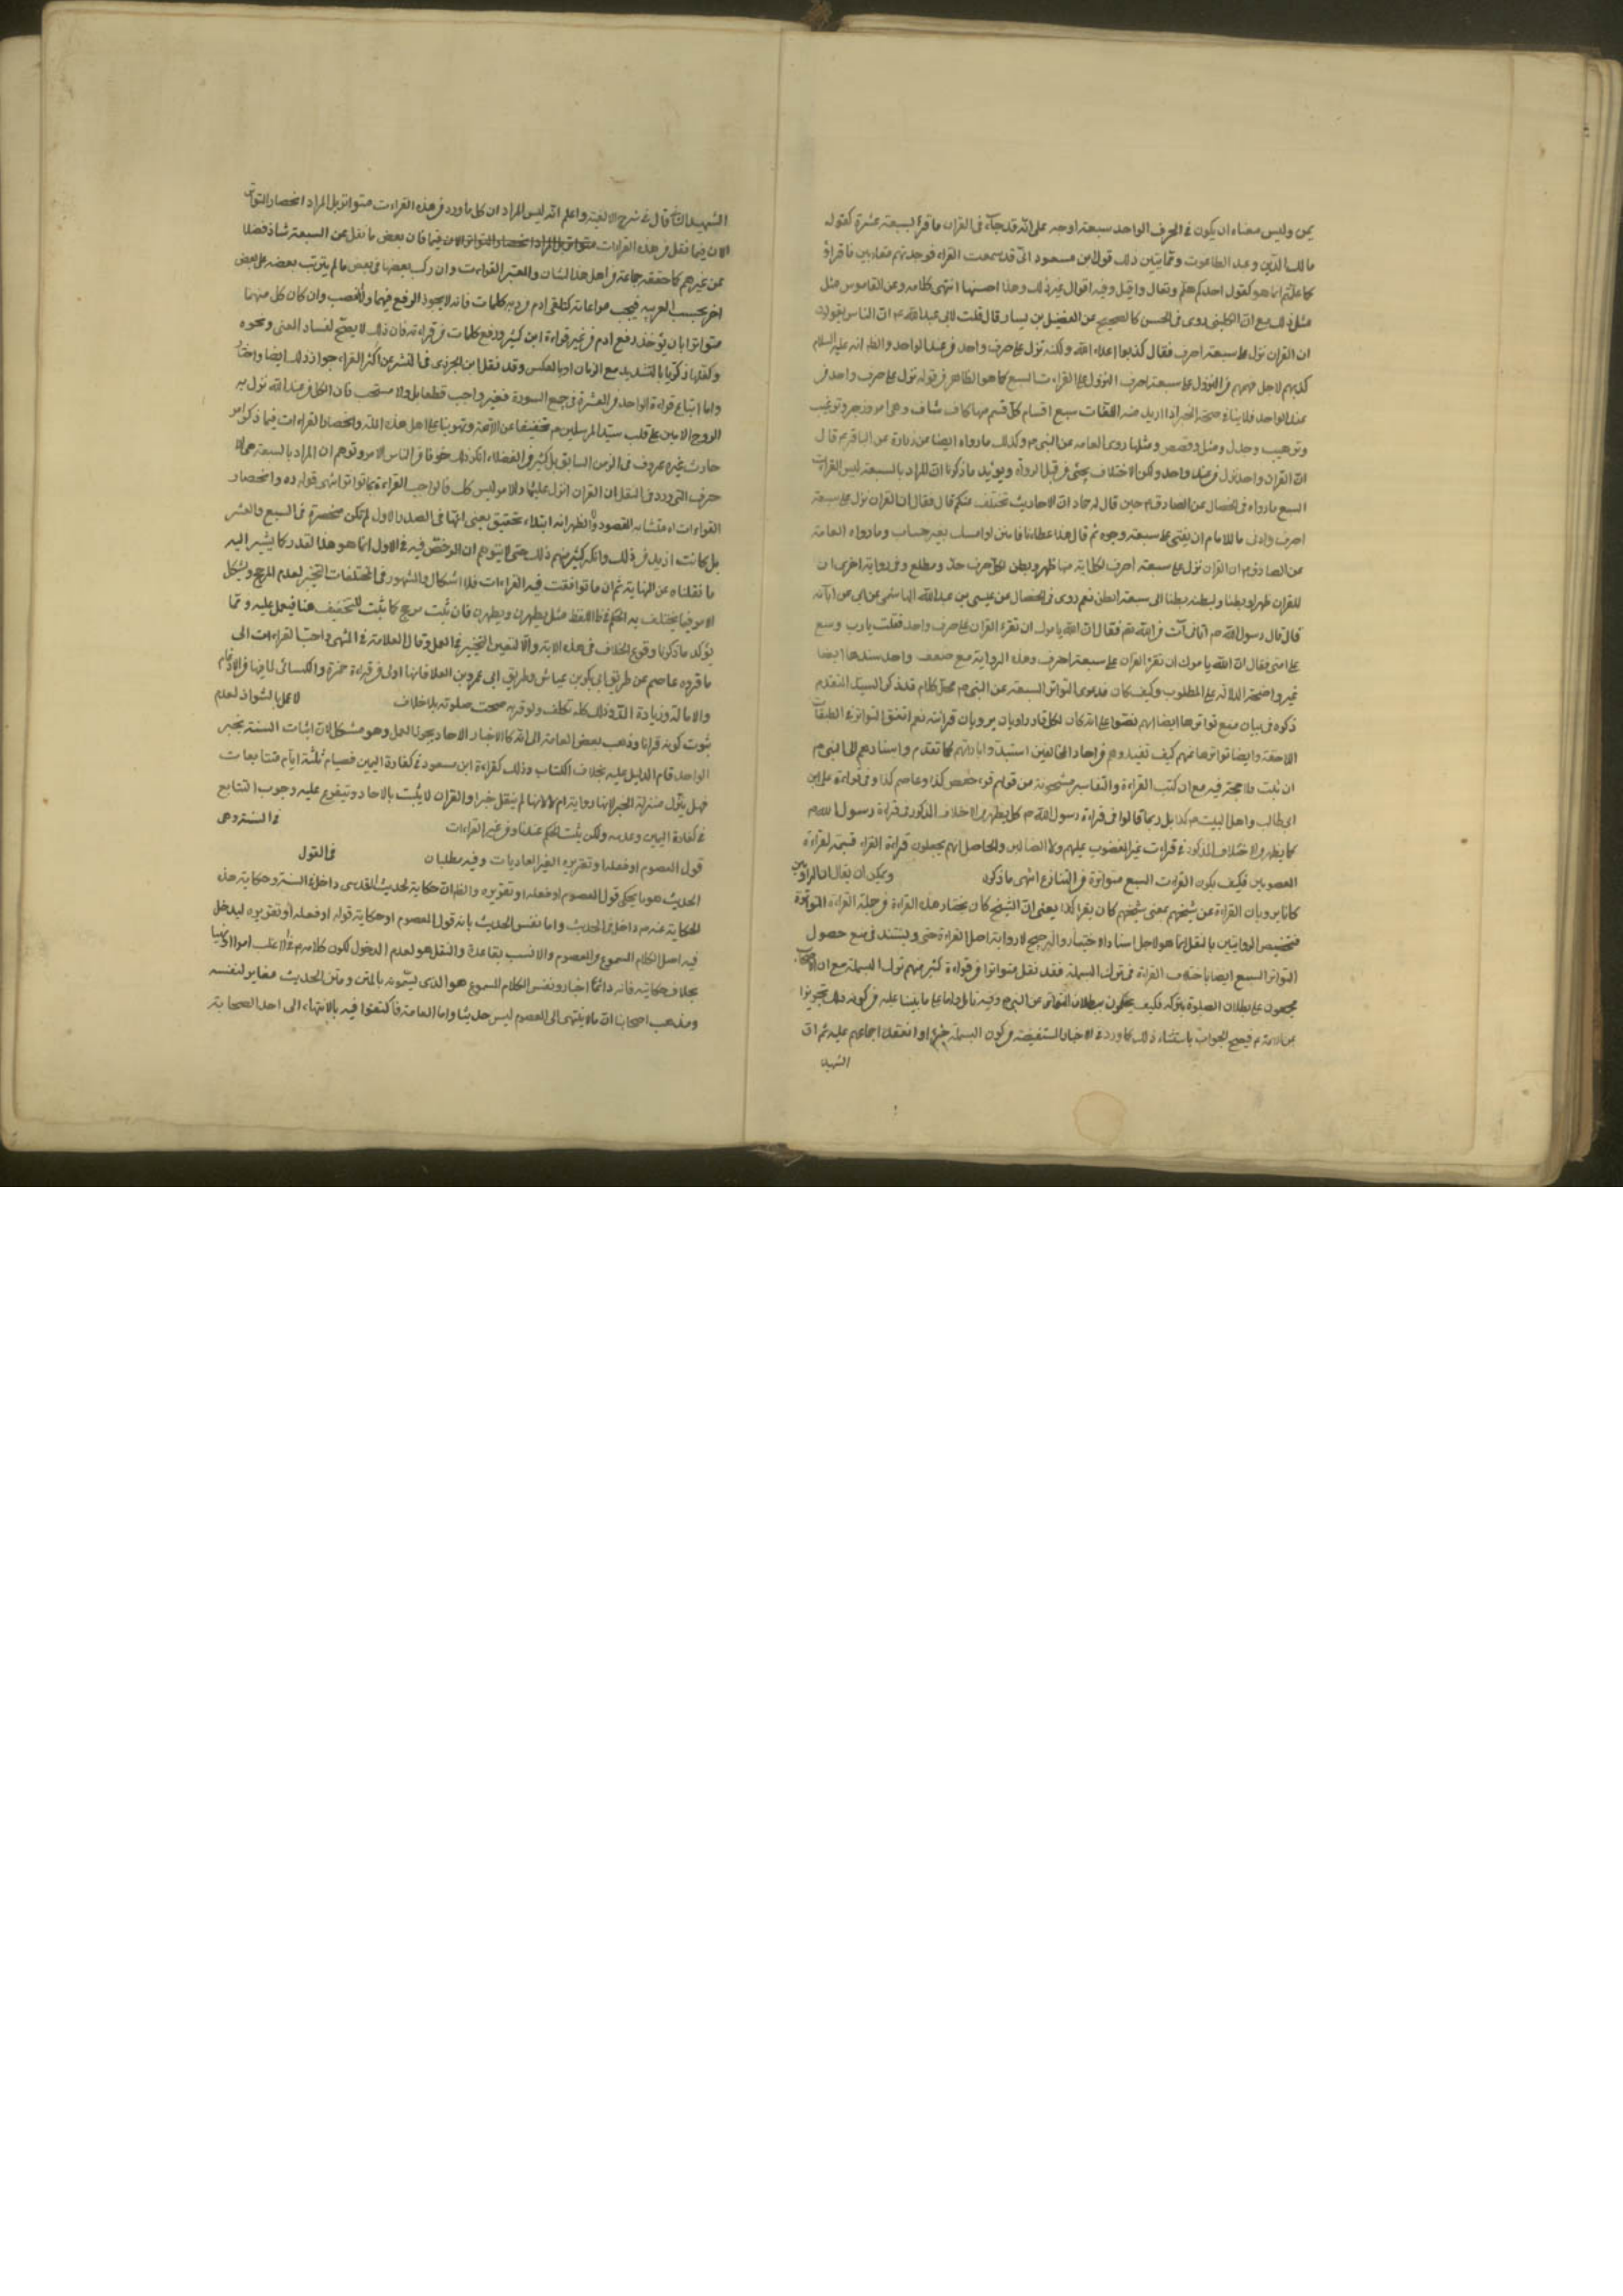 يمن وليس معناه ان يكون في الحرف الواحد سبعة اوجه على انه قد جاء في القران ما قرأ بسبعة عشرة كقوله
مالك يوم الدين وعبد الطاغوت ومما يبين ذلك قول ابن مسعود انى قد سمعت القراء فوجدتهم متقاربين فاقرأوا
كما علمتم انما هو كقول احدكم هلم وتعال واقبل وفيه اقوال غير ذلك وهذا احسنها انتهى كلامه وعن القاموس مثل
مثل ذلك مع ان الكلينى روى في الحسن كالصحيح عن الفضيل بن يسار قال قلت لابي عبد الله ع ان الناس يقولون
ان القران نزل على سبعة احرف فقال كذبوا اعداء الله ولكنه نزل على حرف واحد من عند الواحد والظ انه عليه السلام
كذبهم لاجل فهمهم من النزول على سبعة احرف النزول على القراءت السبع كما هو الظاهر من قوله نزل على حرف واحد من
عند الواحد فلا ينافي صحة الخبر اذا اريد منه اللغات سبع اقسام كل قسم منها كاف شاف وهى امر وزجر وترغيب
وترهيب وجدل ومثل وقصص ومثلها روى العامه عن النبي ص وكذلك ما رواه ايضا عن زرارة عن الباقر ع قال
ان القران واحد نزل من عند واحد ولكن الاختلاف يجئ من قبل الرواة ويؤيد ما ذكرنا ان المراد بالسبعة ليس القراءت
السبع ما رواه في الخصال عن الصادق ع حين قال له حماد ان الاحاديث تختلف منكم قال فقال ان القران نزل على سبعة
احرف وادنى ما للامام ان يفتى على سبعة وجوه ثم قال هذا عطاؤنا فامنن او امسك بغير حساب وما رواه العامة
عن الصادق ع ان القران نزل على سبعة احرف لكل اية منها ظهر وبطن لكل حرف حد ومطلع وفي رواية اخرى ان
للقران ظهرا وبطنا ولبطنه بطنا الى سبعة ابطن نعم روى في الخصال عن عيسى بن عبد الله الهاشمى عن ابي عن ابائه
قال قال رسول الله ص اتانى آت من الله تع فقال ان الله يامرك ان تقرء القران على حرف واحد فقلت يا رب وسع
على امتى فقال ان الله يامرك ان تقرء القران على سبعة احرف وهذه الرواية مع ضعف واحد سندها ايضا
غير واضحة الدلالة على المطلوب وكيف كان فدعوى التواتر السبعة عن النبي ص محل كلام قد ذكر السيد المتقدم
ذكره في بيان منع تواترها ايضا انهم نصوا على انه كان لكل قار راويان يرويان قرائته نعم اتفق التواتر في الطبقات
اللاحقة وايضا تواترها عنهم كيف تفيد وهم من احاد المخالفين استبدوا بارائهم كما تقدم واسنادهم الى النبي ص
ان ثبت فلا حجة فيه مع ان كتب القراءة والتفاسير مشحونة من قولهم قرء حفص كذا وعاصم كذا وفي قراءة على بن
ابيطالب واهل البيت ع كذا بل ربما قالوا في قراءة رسول الله ص كما يظهر من الاختلاف المذكور في قراءة رسول الله ص
كما يظهر من الاختلاف المذكور في قراءت غير المغضوب عليهم ولا الضالين والحاصل انهم يجعلون قراءة القراء قسيمة لقراءة
المعصومين فكيف يكون القراءت السبع متواترة من الشارع انتهى ما ذكره ويمكن ان يقال ان الراويين
كانا يرويان القراءة عن شيخهم بمعنى شيخهم كان يقرأ كذا يعنى ان الشيخ كان يختار هذه القراءة من جملة القراءة المتواترة
فتخصيص الروايتين بالنقل انما هو لاجل اسناد الاختيار والترجيح لا رواية اصل القراءة حتى ويستند في منع حصول
التواتر السبع ايضا باختلاف القراءة في ترك البسملة فقد نقل متواترا من قراءة كثير منهم ترك البسملة مع ان
مجمعون على بطلان الصلوة بتركه فكيف يحكمون ببطلان المتواتر عن النبي ص وفيه تامل
من الائمة ع فيصح الجواب باستثناء ذلك لما ورد في الاخبار المستفيضة من كون البسملة جزء او انعقد اجماعهم عليه ثم ان
الشهيد
الشهيد الثاني قال في شرح الالفية واعلم انه ليس المراد ان كل ما ورد من هذه القراءت متواتر بل المراد انحصار التواتر
الان فيما نقل من هذه القراءات متواتر بل المراد انحصار التواتر الان فيما فان بعض ما نقل عن السبعة شاذ فضلا
عن غيرهم كما حققه جماعة من اهل هذا الشان والمعتبر القراءت وان ركب بعضها في بعض ما لم يترتب بعضه على بعض
اخر بحسب العربيه فيجب مراعاته كتلقى ادم من ربه كلمات فانه لا يجوز الرفع فيهما والنصب وان كان كل منهما
متواترا بان يؤخذ رفع ادم من غير قراءة ابن كثير ورفع كلمات من قراءته فان ذلك لا يصح لفساد المعنى ونحوه
وكفلها زكريا بالتشديد مع الرفع او بالعكس وقد نقل ابن الجزرى في النشر عن اكثر القراء جواز ذلك ايضا واختار
واما اتباع قراءة الواحد من العشرة في جميع السورة فغير واجب قطعا بل ولا مستحب فان الكل من عند الله نزل به
الروح الامين على قلب سيد المرسلين ص تخفيفا عن الامة وتهوينا على اهل هذه الملة وانحصار القراءات فيما ذكر امر
حادث غير معروف في الزمن السابق بل كثير من الفضلاء انكر ذلك خوفا من التباس الامر وتوهم ان المراد بالسبعة هى
حرف التى ورد في النقل ان القران انزل عليها والامر ليس كك فالواجب القراءة بما تواتر انتهى قوله ره وانحصار
القراءات اه
بل كانت ازيد من ذلك وانكر كثير منهم ذلك حتى لا يتوهم ان المرخص فيه في الاول انما هو هذا القدر كما يشير اليه
ما نقلناه عن النهاية ثم ان ما توافقت فيه القراءات فلا اشكال والمشهور في المختلفات التخيير لعدم المرجح ويشكل
الامر فيما يختلف به الحكم في ظ اللفظ مثل يطهرن ويطهرن فان ثبت مرجح كما ثبت للتخفيف هنا فيعمل عليه ومما
يؤكد ما ذكرنا وقوع الخلاف في هذه الاية والا لتعين التخيير في العمل وقال العلامة في المنتهى واحب القراءات الى
ما قرءه عاصم من طريق ابي بكر بن عياش وطريق ابي عمرو بن العلا فانها اولى من قراءة حمزة والكسائى لما فيها من الادغام
والامالة وزيادة المد وذلك كله تكلف ولو قرء به صحت صلوته بلا خلاف لا عمل بالشواذ لعدم
ثبوت كونه قرانا وذهب بعض العامة الى انه كالاخبار الاحاد يجوز العمل وهو مشكل لان اثبات السنة بخبر
الواحد قام الدليل عليه بخلاف الكتاب وذلك كقراءة ابن مسعود في كفارة اليمين فصيام ثلثة ايام متتابعات
فهل ينزل منزلة الخبر لانها رواية ام لا لانها لم ينقل خبرا والقران لا يثبت بالاحاد ويتفرع عليه وجوب التتابع
في كفارة اليمين وعدمه ولكن ثبت الحكم عندنا من غير القراءات في السنة وهى
قول المعصوم او فعله او تقريره الغير العاديات وفيه مطلبان في القول
الحديث هو ما يحكى قول المعصوم او فعله او تقريره والظ ان حكاية الحديث القدسى داخل في السنة وحكاية هذه
الحكاية عنه ص داخل في الحديث واما نفس الحديث بانه قول المعصوم او حكاية قوله او فعله او تقريره ليدخل
فيه اصل الكلام المسموع من المعصوم والانسب بقاعدة والنقل هو لعدم الدخول لكون كلامه ع في الاغلب امرا او نهيا
بخلاف حكايته فانه دائما اخبار ونفس الكلام المسموع هو الذى يسمونه بالمتن ومتن الحديث مغاير لنفسه
ومذهب اصحابنا ان ما لا ينتهى الى المعصوم ليس حديثا واما العامة فاكتفوا فيه بالانتهاء الى احد الصحابة